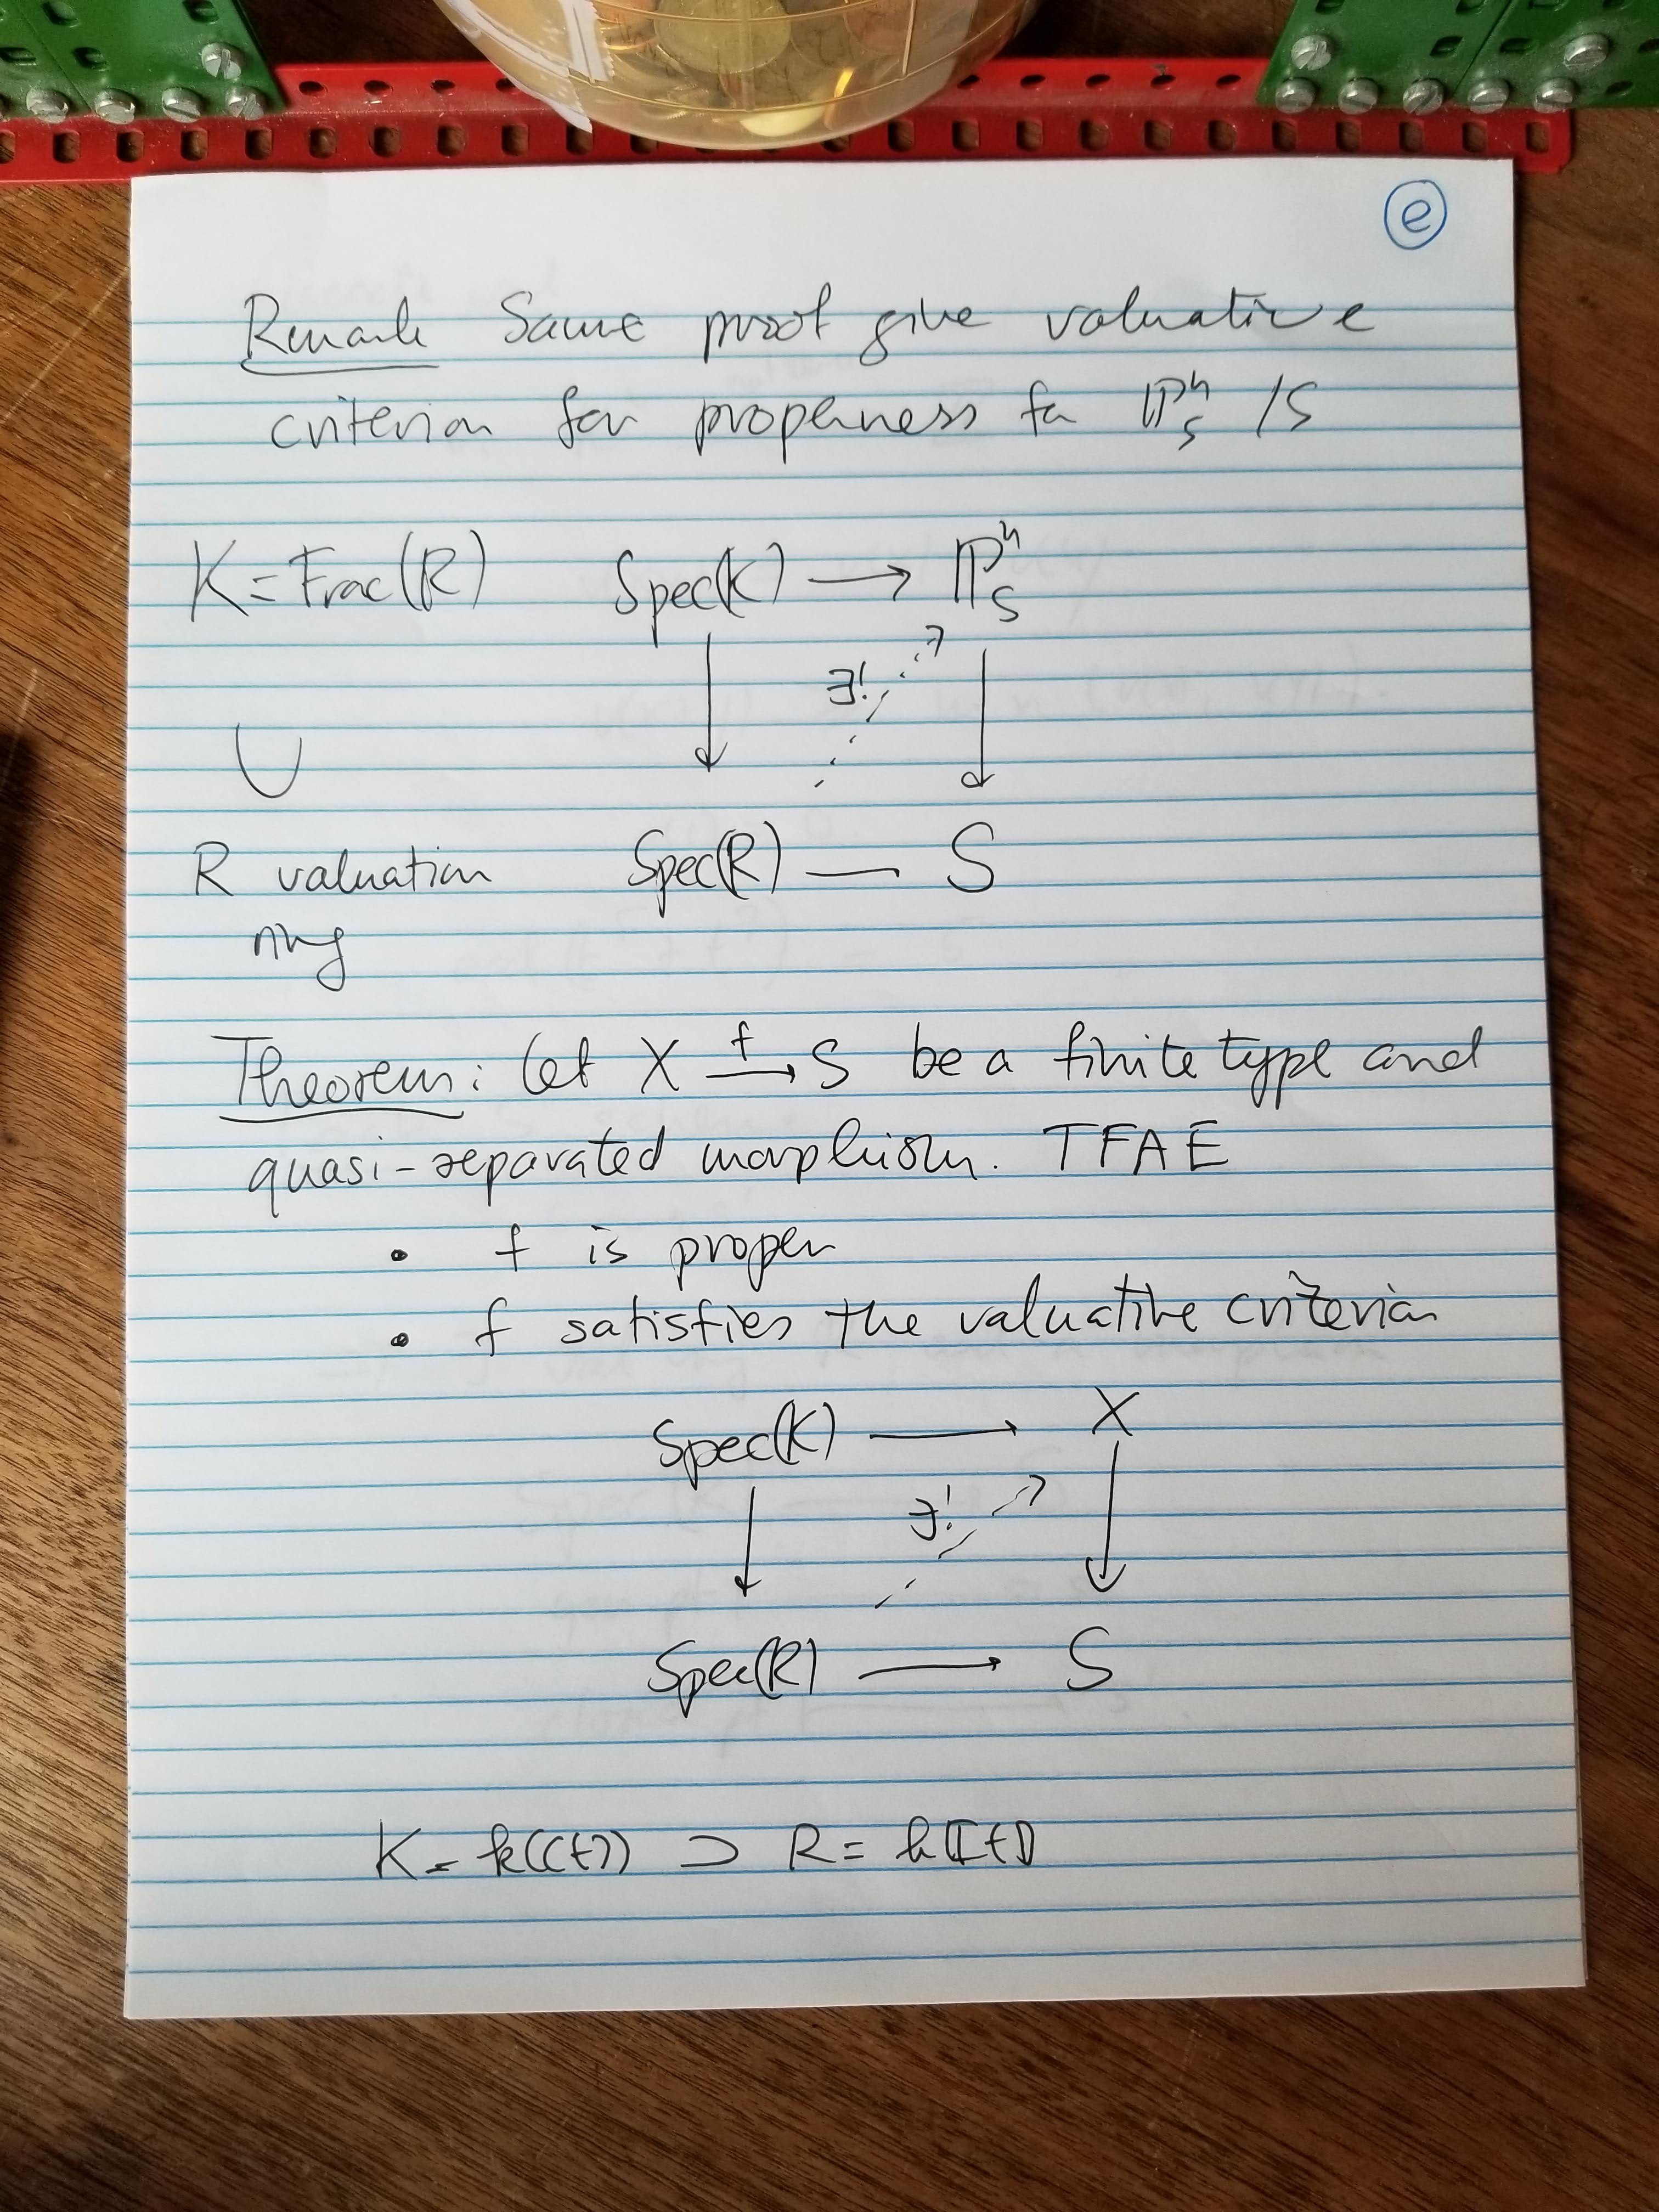 e
Remark Same proof give valuative
criterion for properness for ℙⁿ_S /S
K = Frac(R) Spec(K) ⟶ ℙⁿ_S
∃!
∪
R valuation Spec(R) — S
ring
Theorem: Let X →f S be a finite type and
quasi-separated morphism. TFAE
• f is proper
• f satisfies the valuative criterion
Spec(K) ⟶ X
∃!
Spec(R) ⟶ S
K = k((t)) ⊃ R = k⟦t⟧